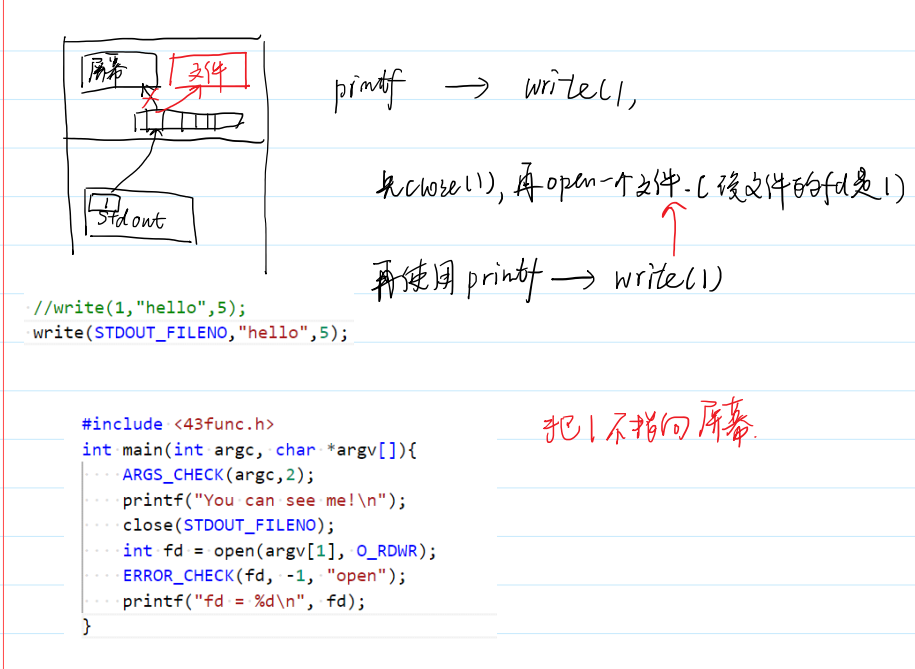 屏幕 文件
printf → write(1,
先close(1), 再open一个文件.(该文件的fd是1)
1
stdout
再使用printf → write(1)
//write(1,"hello",5);
write(STDOUT_FILENO,"hello",5);
把1不指向屏幕.
#include <43func.h>
int main(int argc, char *argv[]){
    ARGS_CHECK(argc,2);
    printf("You can see me!\n");
    close(STDOUT_FILENO);
    int fd = open(argv[1], O_RDWR);
    ERROR_CHECK(fd, -1, "open");
    printf("fd = %d\n", fd);
}